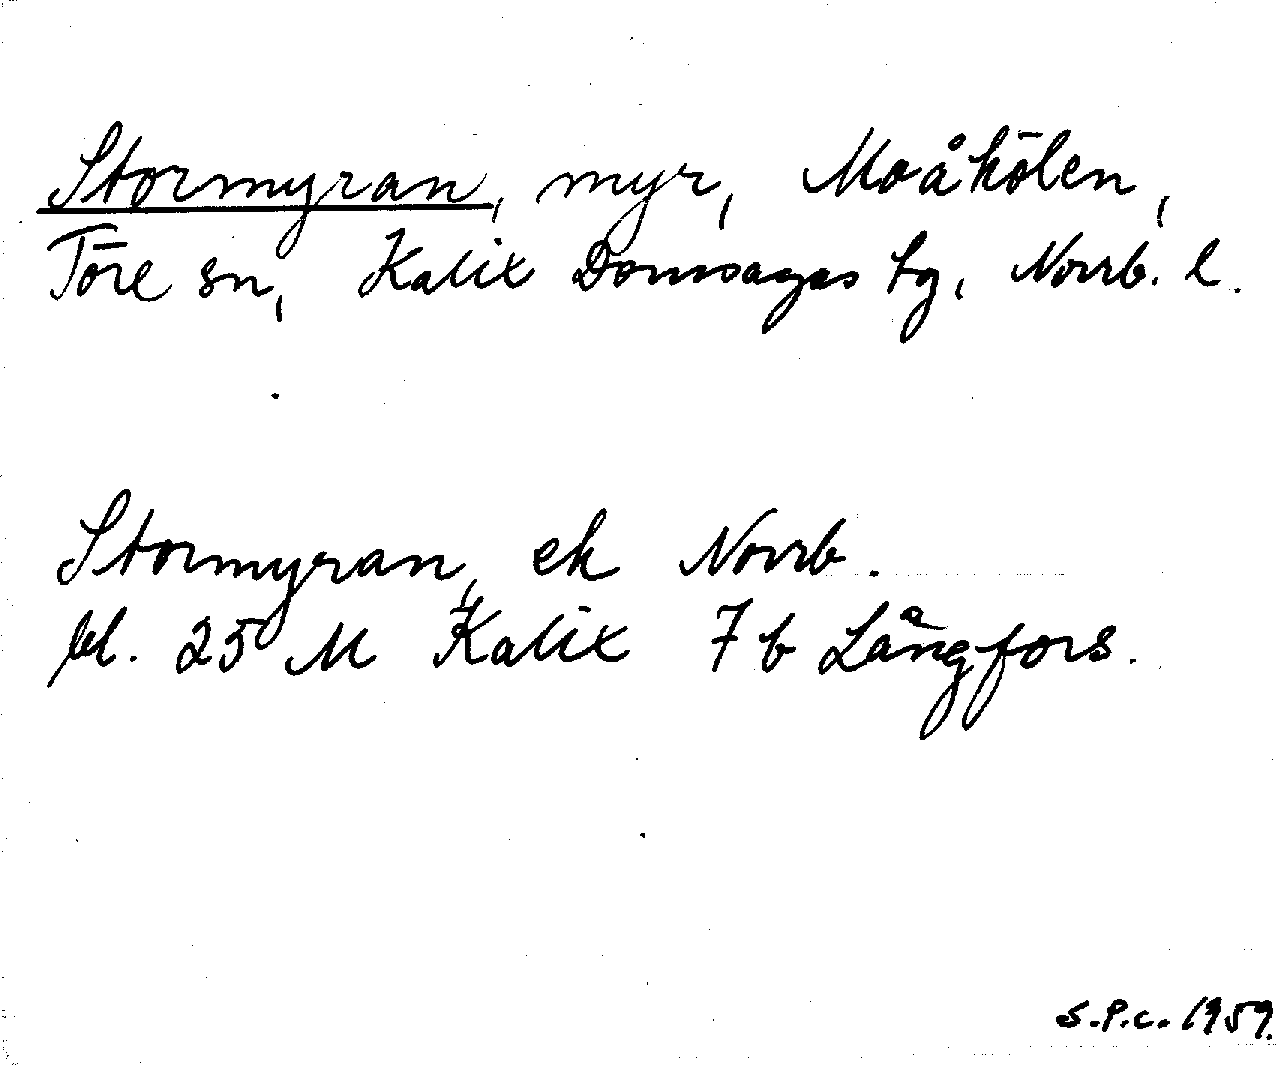 Stormyran, myr, Moåkölen,
Töre sn, Kalix Domsagas tg, Norrb. l.
Stormyran, ek Norrb.
bl. 25 M Kalix 7b Långfors.
S.P.C. 1959.